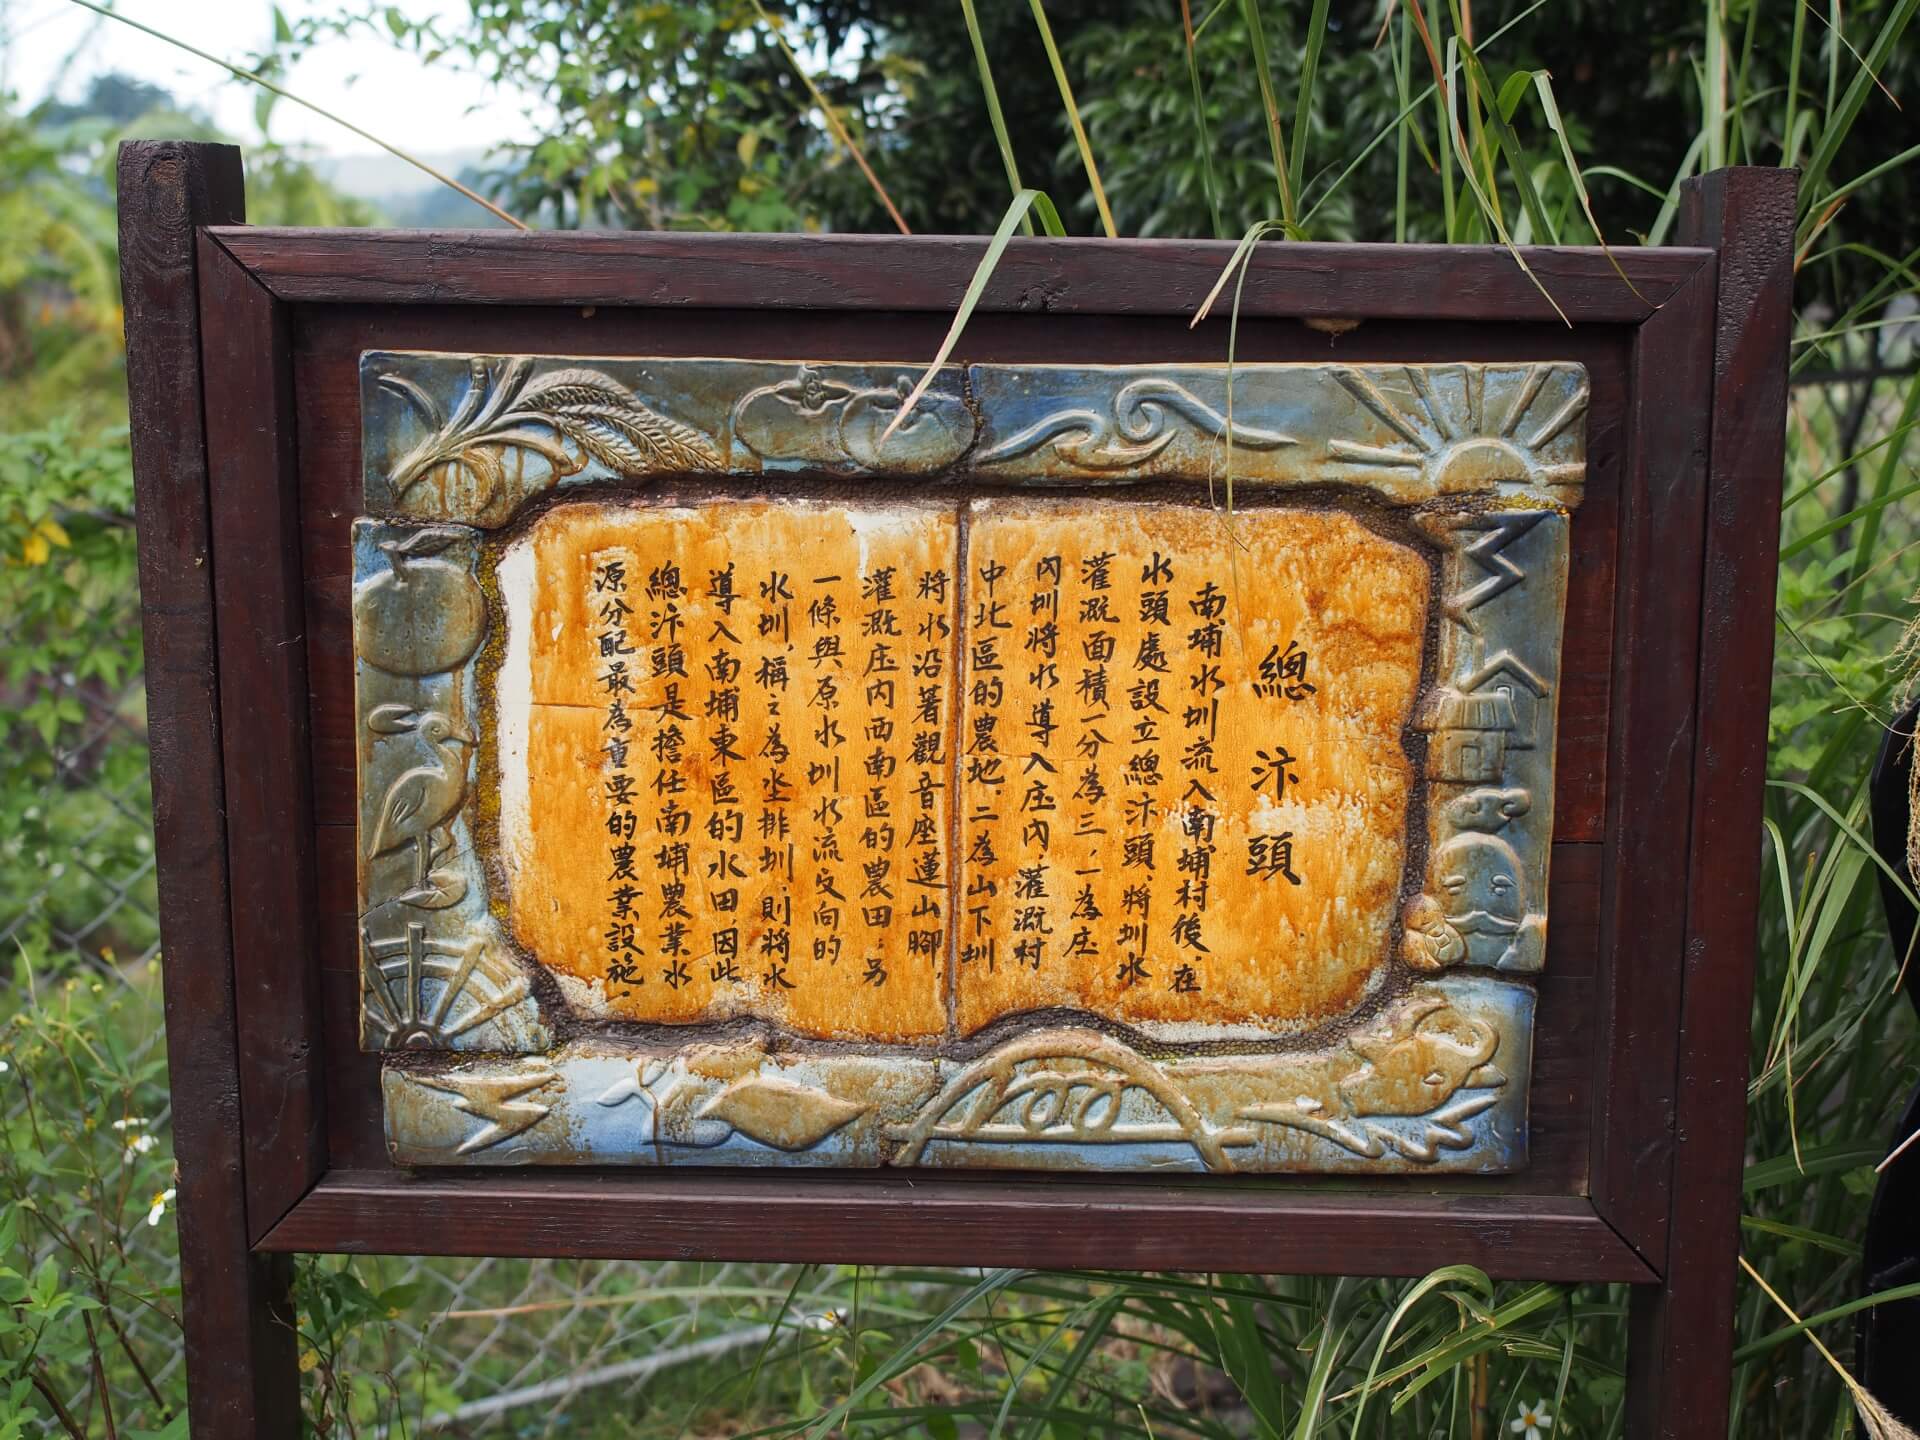 總汴頭
南埔水圳流入南埔村後，在
水頭處設立總汴頭，將圳水
灌溉面積一分為三，一為庄
內圳將水導入庄內，灌溉村
中北區的農地，二為山下圳
將水沿著觀音座蓮山腳，
灌溉庄內西南區的農田；另
一條與原水圳水流交向的
水圳，稱之為坔排圳，則將水
導入南埔東區的水田，因此
總汴頭是擔任南埔農業水
源分配最為重要的農業設施。